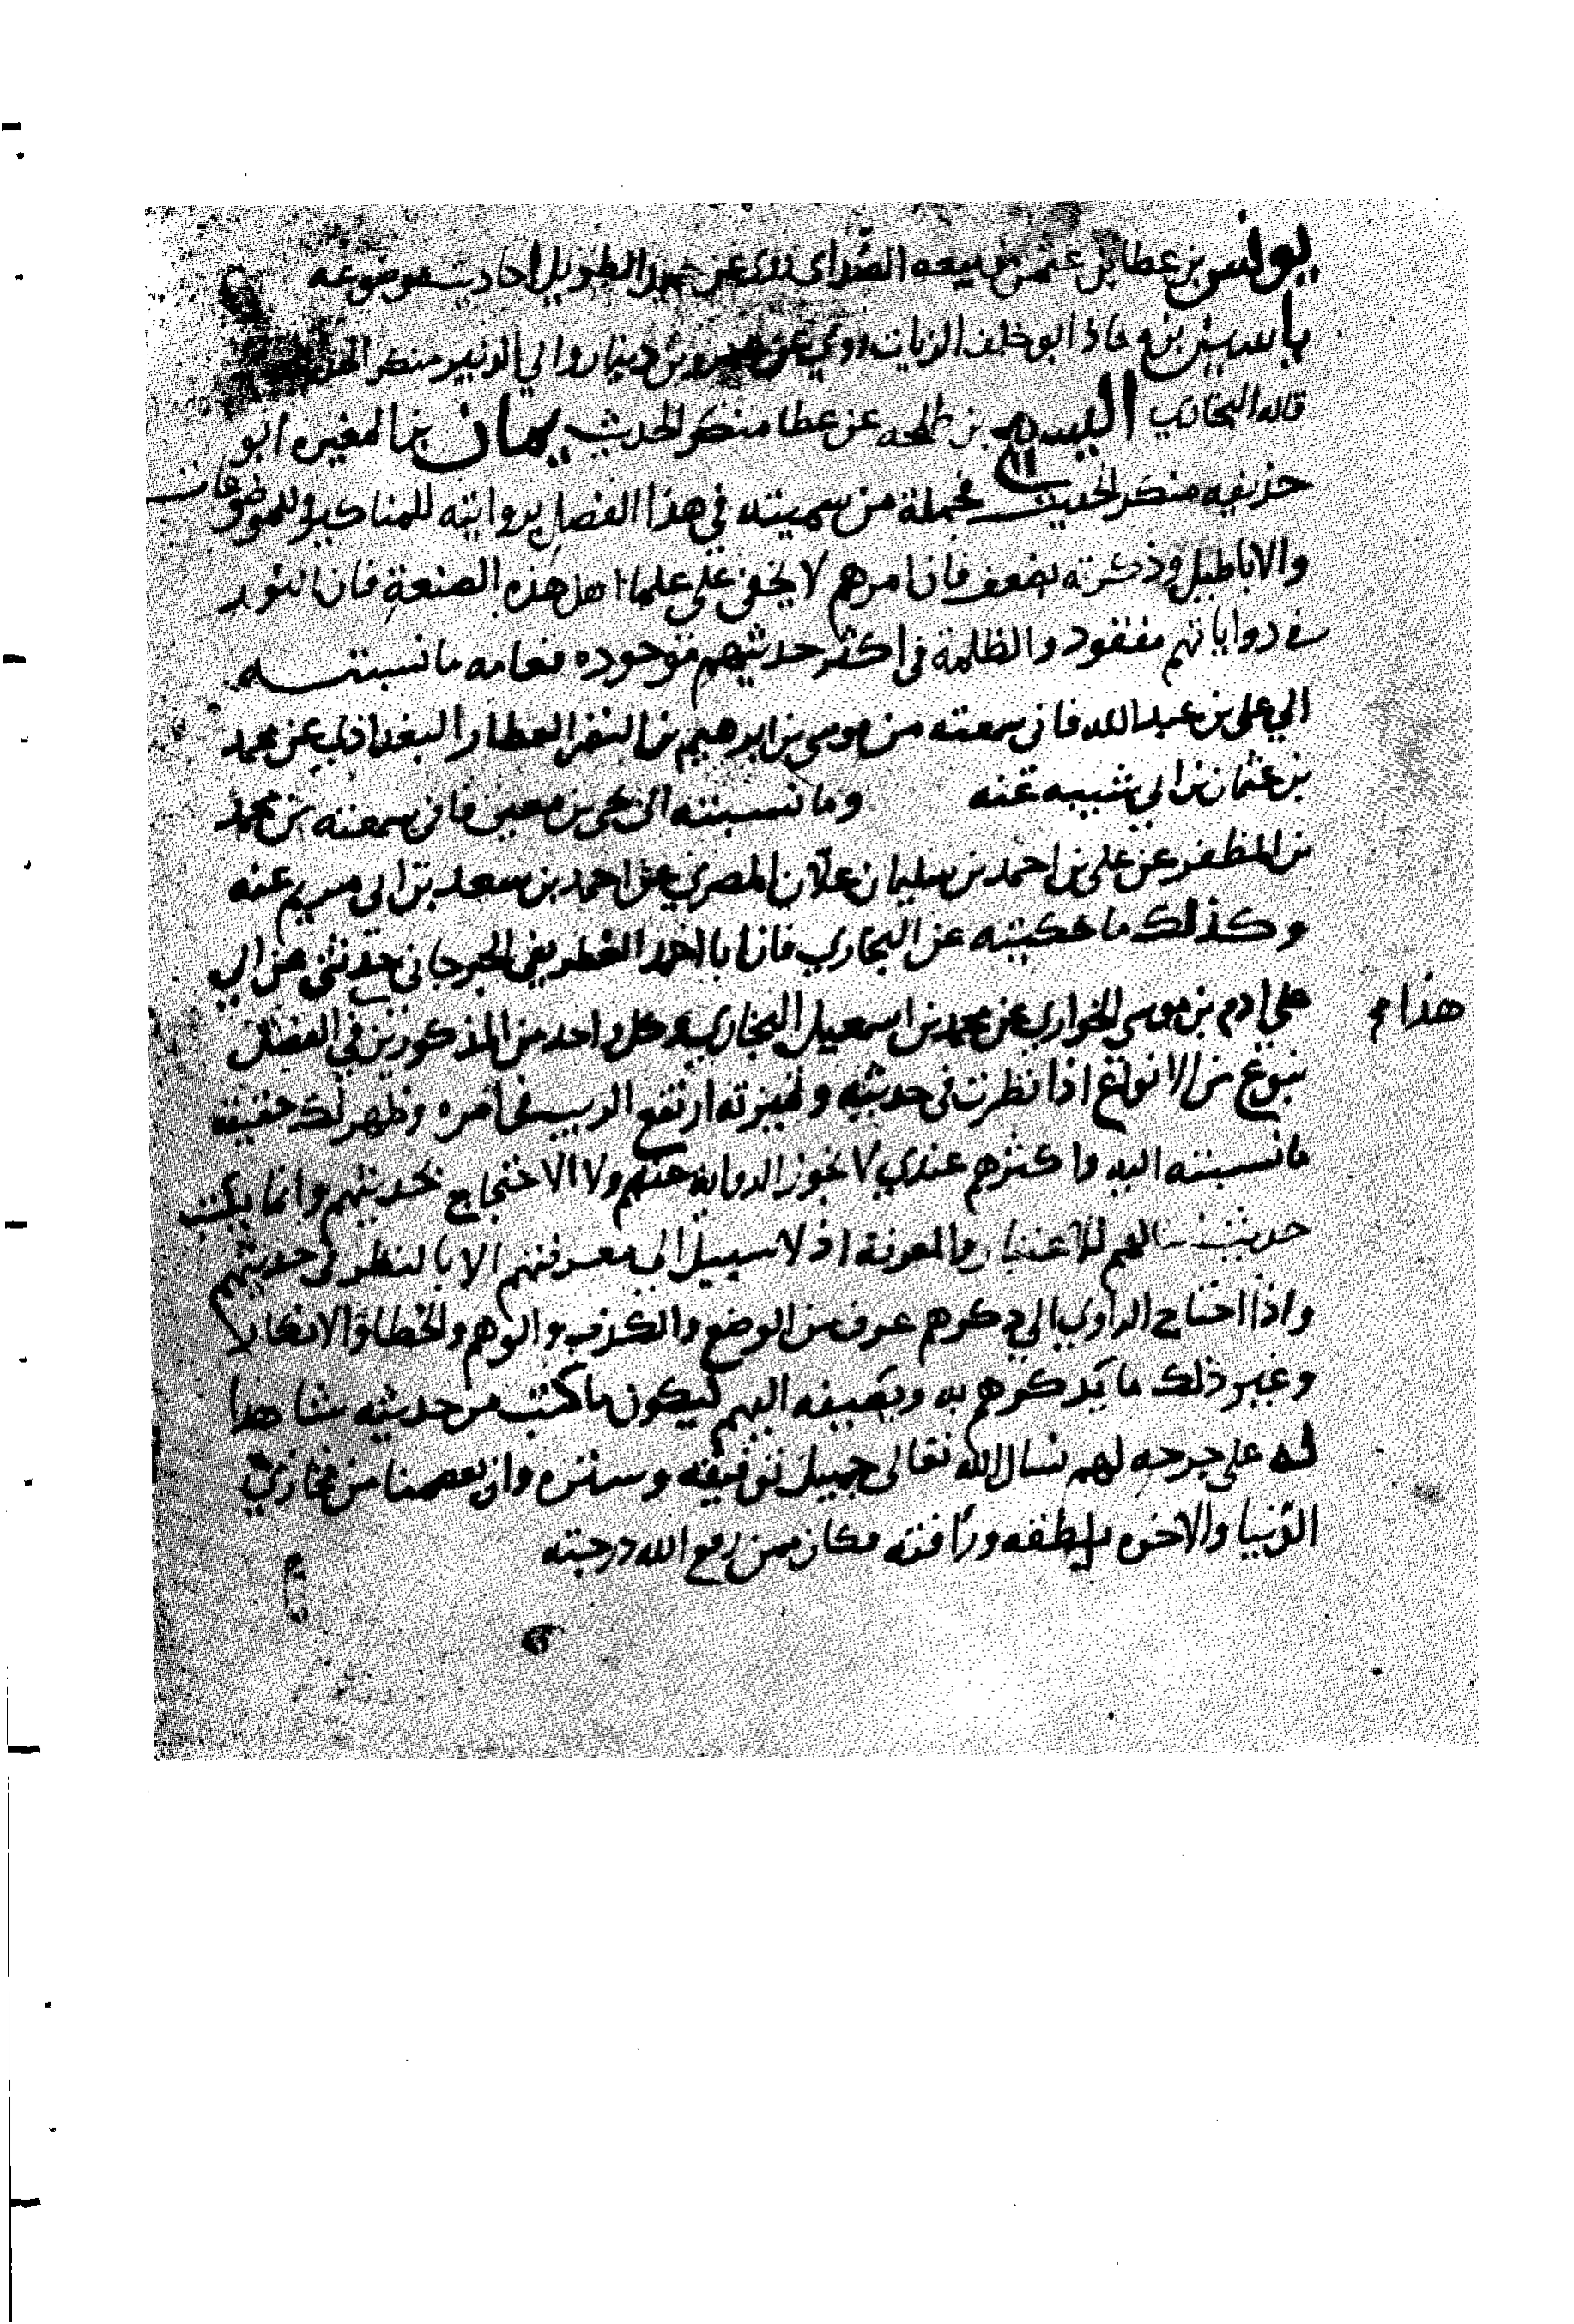 يونس بن عطا بن عثمن بن ربيعه الصدائي روى عن حميد الطويل احاديث موضوعه
ياسين بن معاذ ابو خلف الزيات روى عن عمرو بن دينار وابي الزبير منكر
قاله البخاري اليسع بن طلحه عن عطا منكر الحديث يمان بن المغيره ابو
حذيفه منكر الحديث فجملة من سميته في هذا الفصل بروايته للمناكير وللموضوعات
والاباطيل وذكرته بضعف فان امرهم لا يخفى على علما اهل هذه الصنعة فان النور
في رواياتهم مفقود والظلمة في اكثر حديثهم موجوده فعامه ما نسبته
الي علي بن عبد الله فاني سمعته من موسى بن ابرهيم بن النضر العطار البغدادي عن محمد
بن عثمان بن ابي شيبه عنه وما نسبته الى يحيى بن معين فاني سمعته من محمد
بن المظفر عن علي بن احمد بن سليمان علان المصري عن احمد بن سعد بن ابي مريم عنه
وكذلك ما حكيته عن البخاري فان ابا احمد الغطريفي الجرجاني حدثني عن ابي
علي ادم بن موسى الخواري عن محمد بن اسمعيل البخاري وكل واحد من المذكورين في الفضل
هذا م
بنوع من الانواع اذا نظرت في حديثه وتميزته ارتفع الريب في امره وظهر لك حقيقة
ما نسبته اليه واكثرهم عندي لا تجوز الرواية عنهم ولا الاحتجاج بحديثهم وانما يكتب
حديث للاعتبار والمعرفة اذ لا سبيل الى معرفتهم الا بالنظر في حديثهم
واذا احتاج الراوي الى ذكرهم عرف من الوضع والكذب والوهم والخطا والانكار لا
وغير ذلك ما يذكرهم به ويضيفه اليهم ليكون ما كتب من حديثه شاهدا
له على جرحه لهم نسال الله تعالى جميل توفيقه وستره وان يعصمنا من مخازي
الدنيا والاخره بلطفه ورأفته فكان ممن رفع الله درجته